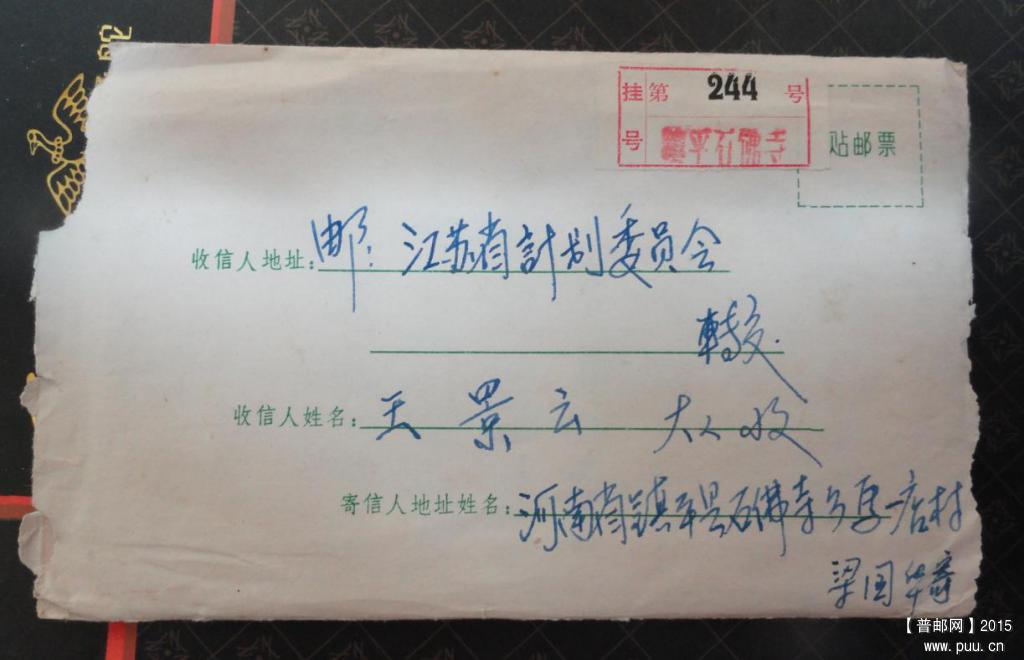 挂号 第 244 号
镇平石佛寺
贴邮票
收信人地址: 邮: 江苏省計划委员会
轉交.
收信人姓名: 王景云 大人收
寄信人地址姓名: 河南省鎮平县石佛寺乡 店村
梁国华寄
【普邮网】2015
www.puu.cn